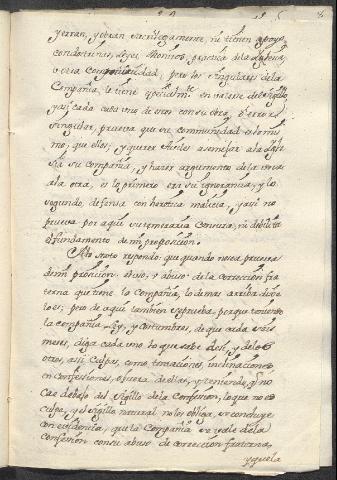 yerran, y obran sacrilegamente, ni tienen apoyo
con doctrinas, Leyes, Monitos, practica de la Iglesia,
u otra Comunidad, pero los singulares de la
Compañia, le tiene en valerse del sigilo,
y asi cada cosa uno de esos con su obra, ò error
singular, prueva que su communidad es lo mis
mo, que ellos; y querer asemejar a la Igle
sia su Compañia, y hazer argumento de la una
a la otra, es lo primero era su ignorancia, y lo
segundo, defensa con heretica malicia, y asi no
prueva por aqui su temeraria Censura, ni debilita
el fundamento de mi proposicion.
respondo: que quando no sea prueva
de mi proposicion el uso, ò abuso de la correccion fra
terna que tiene la Compañia, lo demas arriba dicho
lo es; pero de aqui tambien se prueba, porque teniendo
la Compañia Ley, y Costumbres, de que cada seis
meses, diga cada uno lo que sabe de si, y de los
otros, asi culpas, como tentaciones, inclinaciones
en confesiones, ò fuera de ellas, y teniendo, q. no
cae debajo del sigilo de la Confesion, lo que no es
culpa, y el sigilo natural no los obliga, se concluye
con evidencia, que la Compañia se vale de la
confesion con su abuso de correccion fraterna,
y que la